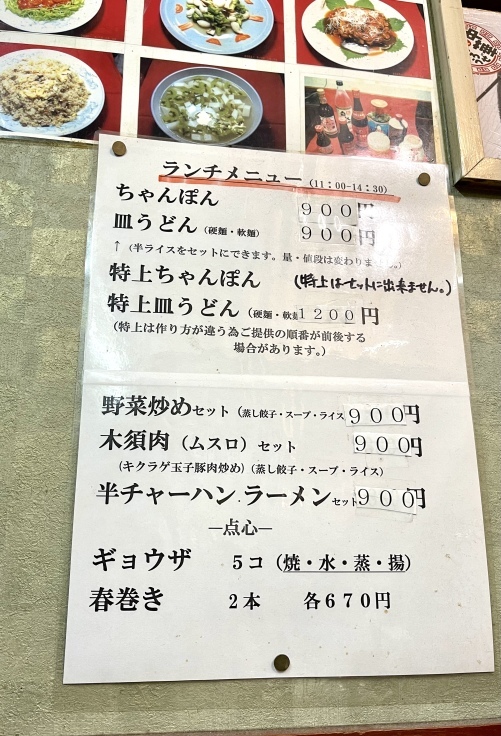 ランチメニュー(11:00-14:30)
ちゃんぽん 900円
皿うどん(硬麺・軟麺) 900円
↑(半ライスをセットにできます。量・値段は変わりません。)
特上ちゃんぽん (特上はセットに出来ません。)
特上皿うどん(硬麺・軟麺 1200円
(特上は作り方が違う為ご提供の順番が前後する
場合があります。)
野菜炒めセット(蒸し餃子・スープ・ライス 900円
木須肉(ムスロ)セット 900円
(キクラゲ玉子豚肉炒め)(蒸し餃子・スープ・ライス)
半チャーハン.ラーメンセット 900円
―点心―
ギョウザ 5コ(焼・水・蒸・揚)
春巻き 2本 各670円